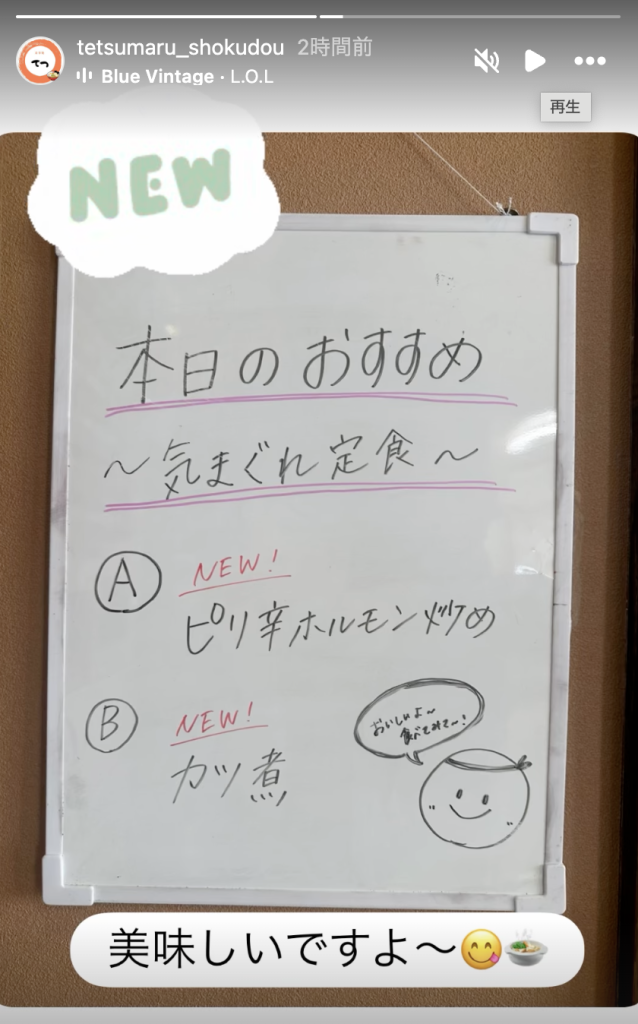 tetsumaru_shokudou 2時間前
Blue Vintage · L.O.L
再生
てつ
NEW
本日のおすすめ
～気まぐれ定食～
A NEW!
ピリ辛ホルモン炒め
B NEW!
カツ煮
おいしいよ～
食べてみて～!
美味しいですよ〜😋🍲